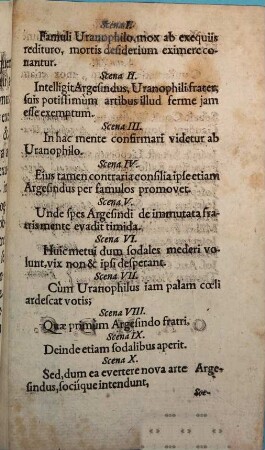 Scena I.
Famuli Uranophilo, mox ab exequiis
redituro, mortis desiderium eximere co-
nantur.
Scena II.
Intelligit Argesindus, Uranophili frater,
suis potissimum artibus illud ferme jam
esse exemptum.
Scena III.
In hac mente confirmari videtur ab
Uranophilo.
Scena IV.
Ejus tamen contraria consilia ipse etiam
Argesindus per famulos promovet.
Scena V.
Unde spes Argesindi de immutata fra-
tris mente evadit timida.
Scena VI.
Huic metui dum sodales mederi vo-
lunt, vix non & ipsi desperant.
Scena VII.
Cùm Uranophilus jam palam cœli
ardescat votis;
Scena VIII.
Quæ primùm Argesindo fratri.
Scena IX.
Deinde etiam sodalibus aperit.
Scena X.
Sed, dum ea evertere nova arte Arge-
sindus, sociique intendunt,
Sce-